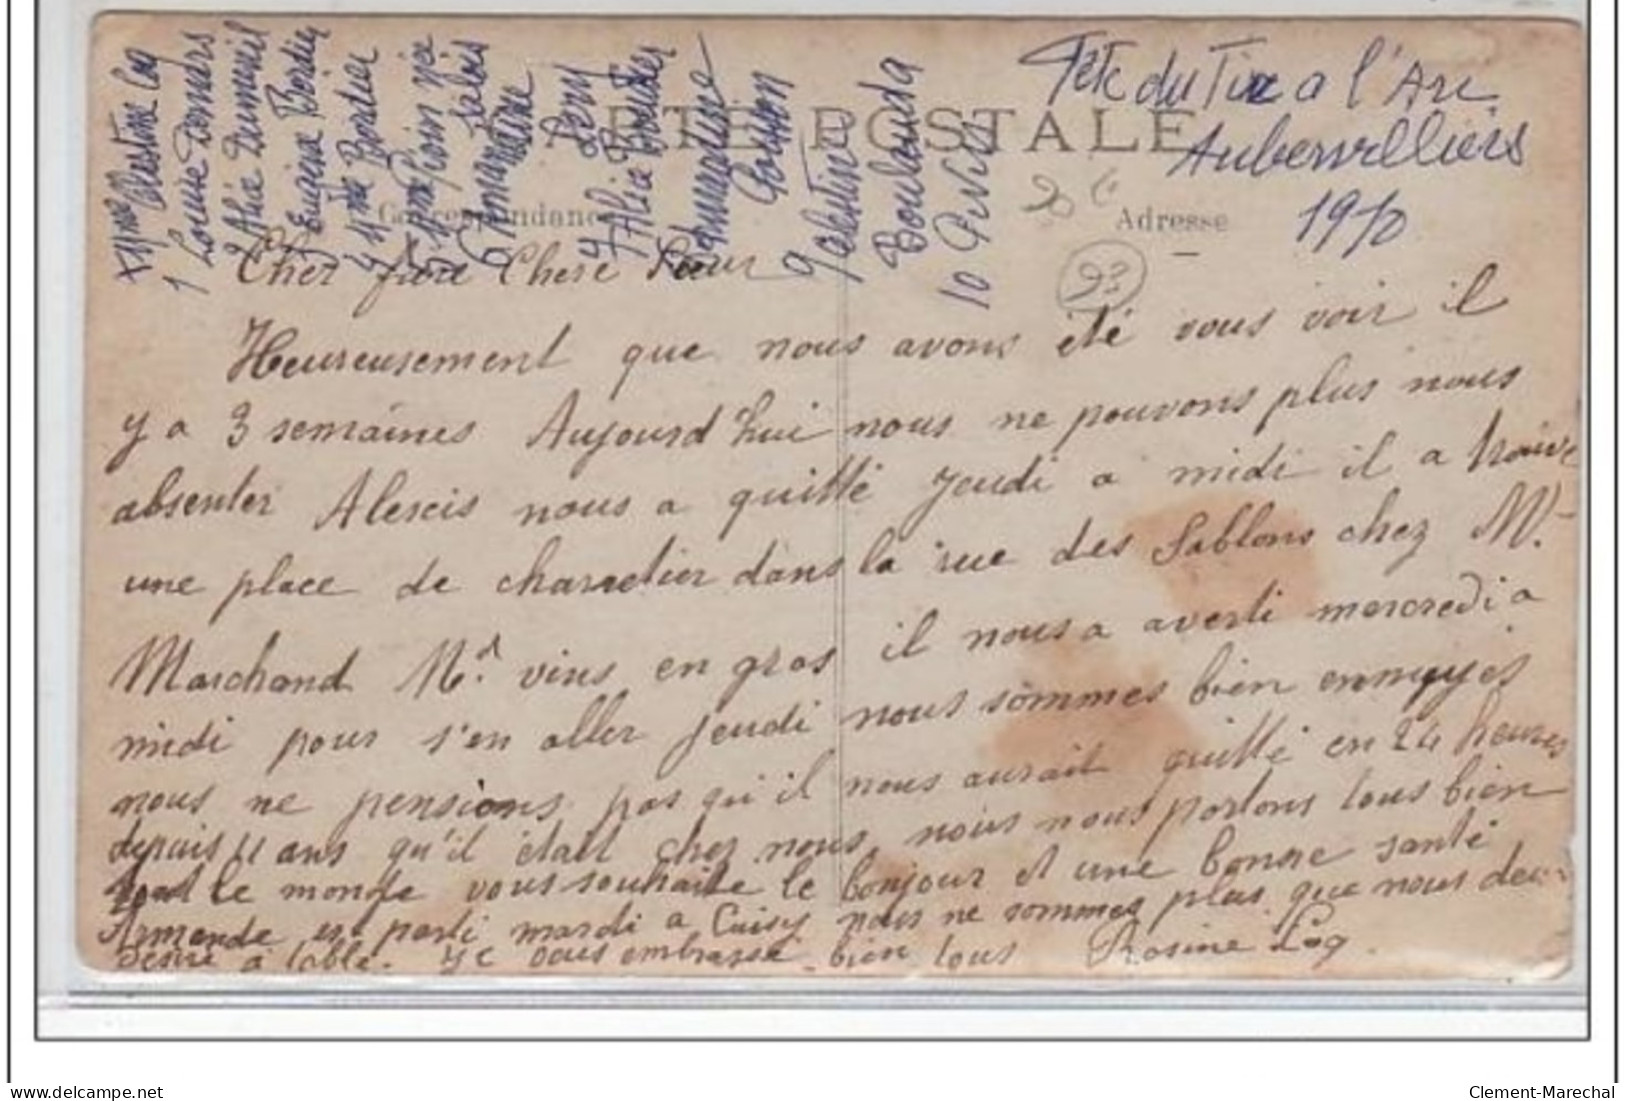 XI Mme Célestine Coq
1 Louise Demars
2 Alice Dumenil
3 Eugina Bordier
4 Mme Bordier
5 Mme née Jalois
6 Mme
7 Alice
8 Armandine
9 Valentine Boulanda
10
CARTE POSTALE
Fête du Tir a l'Arc
Aubervilliers
1910
Correspondance
Adresse
93
Cher frère Chere Sœur
Heureusement que nous avons été vous voir il
y a 3 semaines Aujourd'hui nous ne pouvons plus nous
absenter Alexis nous a quitté jeudi a midi il a trouvé
une place de charretier dans la rue des Sablons chez Mr
Marchand Md. vins en gros il nous a averti mercredi a
midi pour s'en aller jeudi nous sommes bien ennuyés
nous ne pensions pas qu'il nous aurait quitté en 24 heures
depuis 11 ans qu'il était chez nous, nous nous portons tous bien
tout le monde vous souhaite le bonjour et une bonne santé
Armande est parti mardi a Cuisy nous ne sommes plus que nous deux
Désiré a table. je vous embrasse bien tous Rosine Coq.
delcampe.net
Clement-Marechal